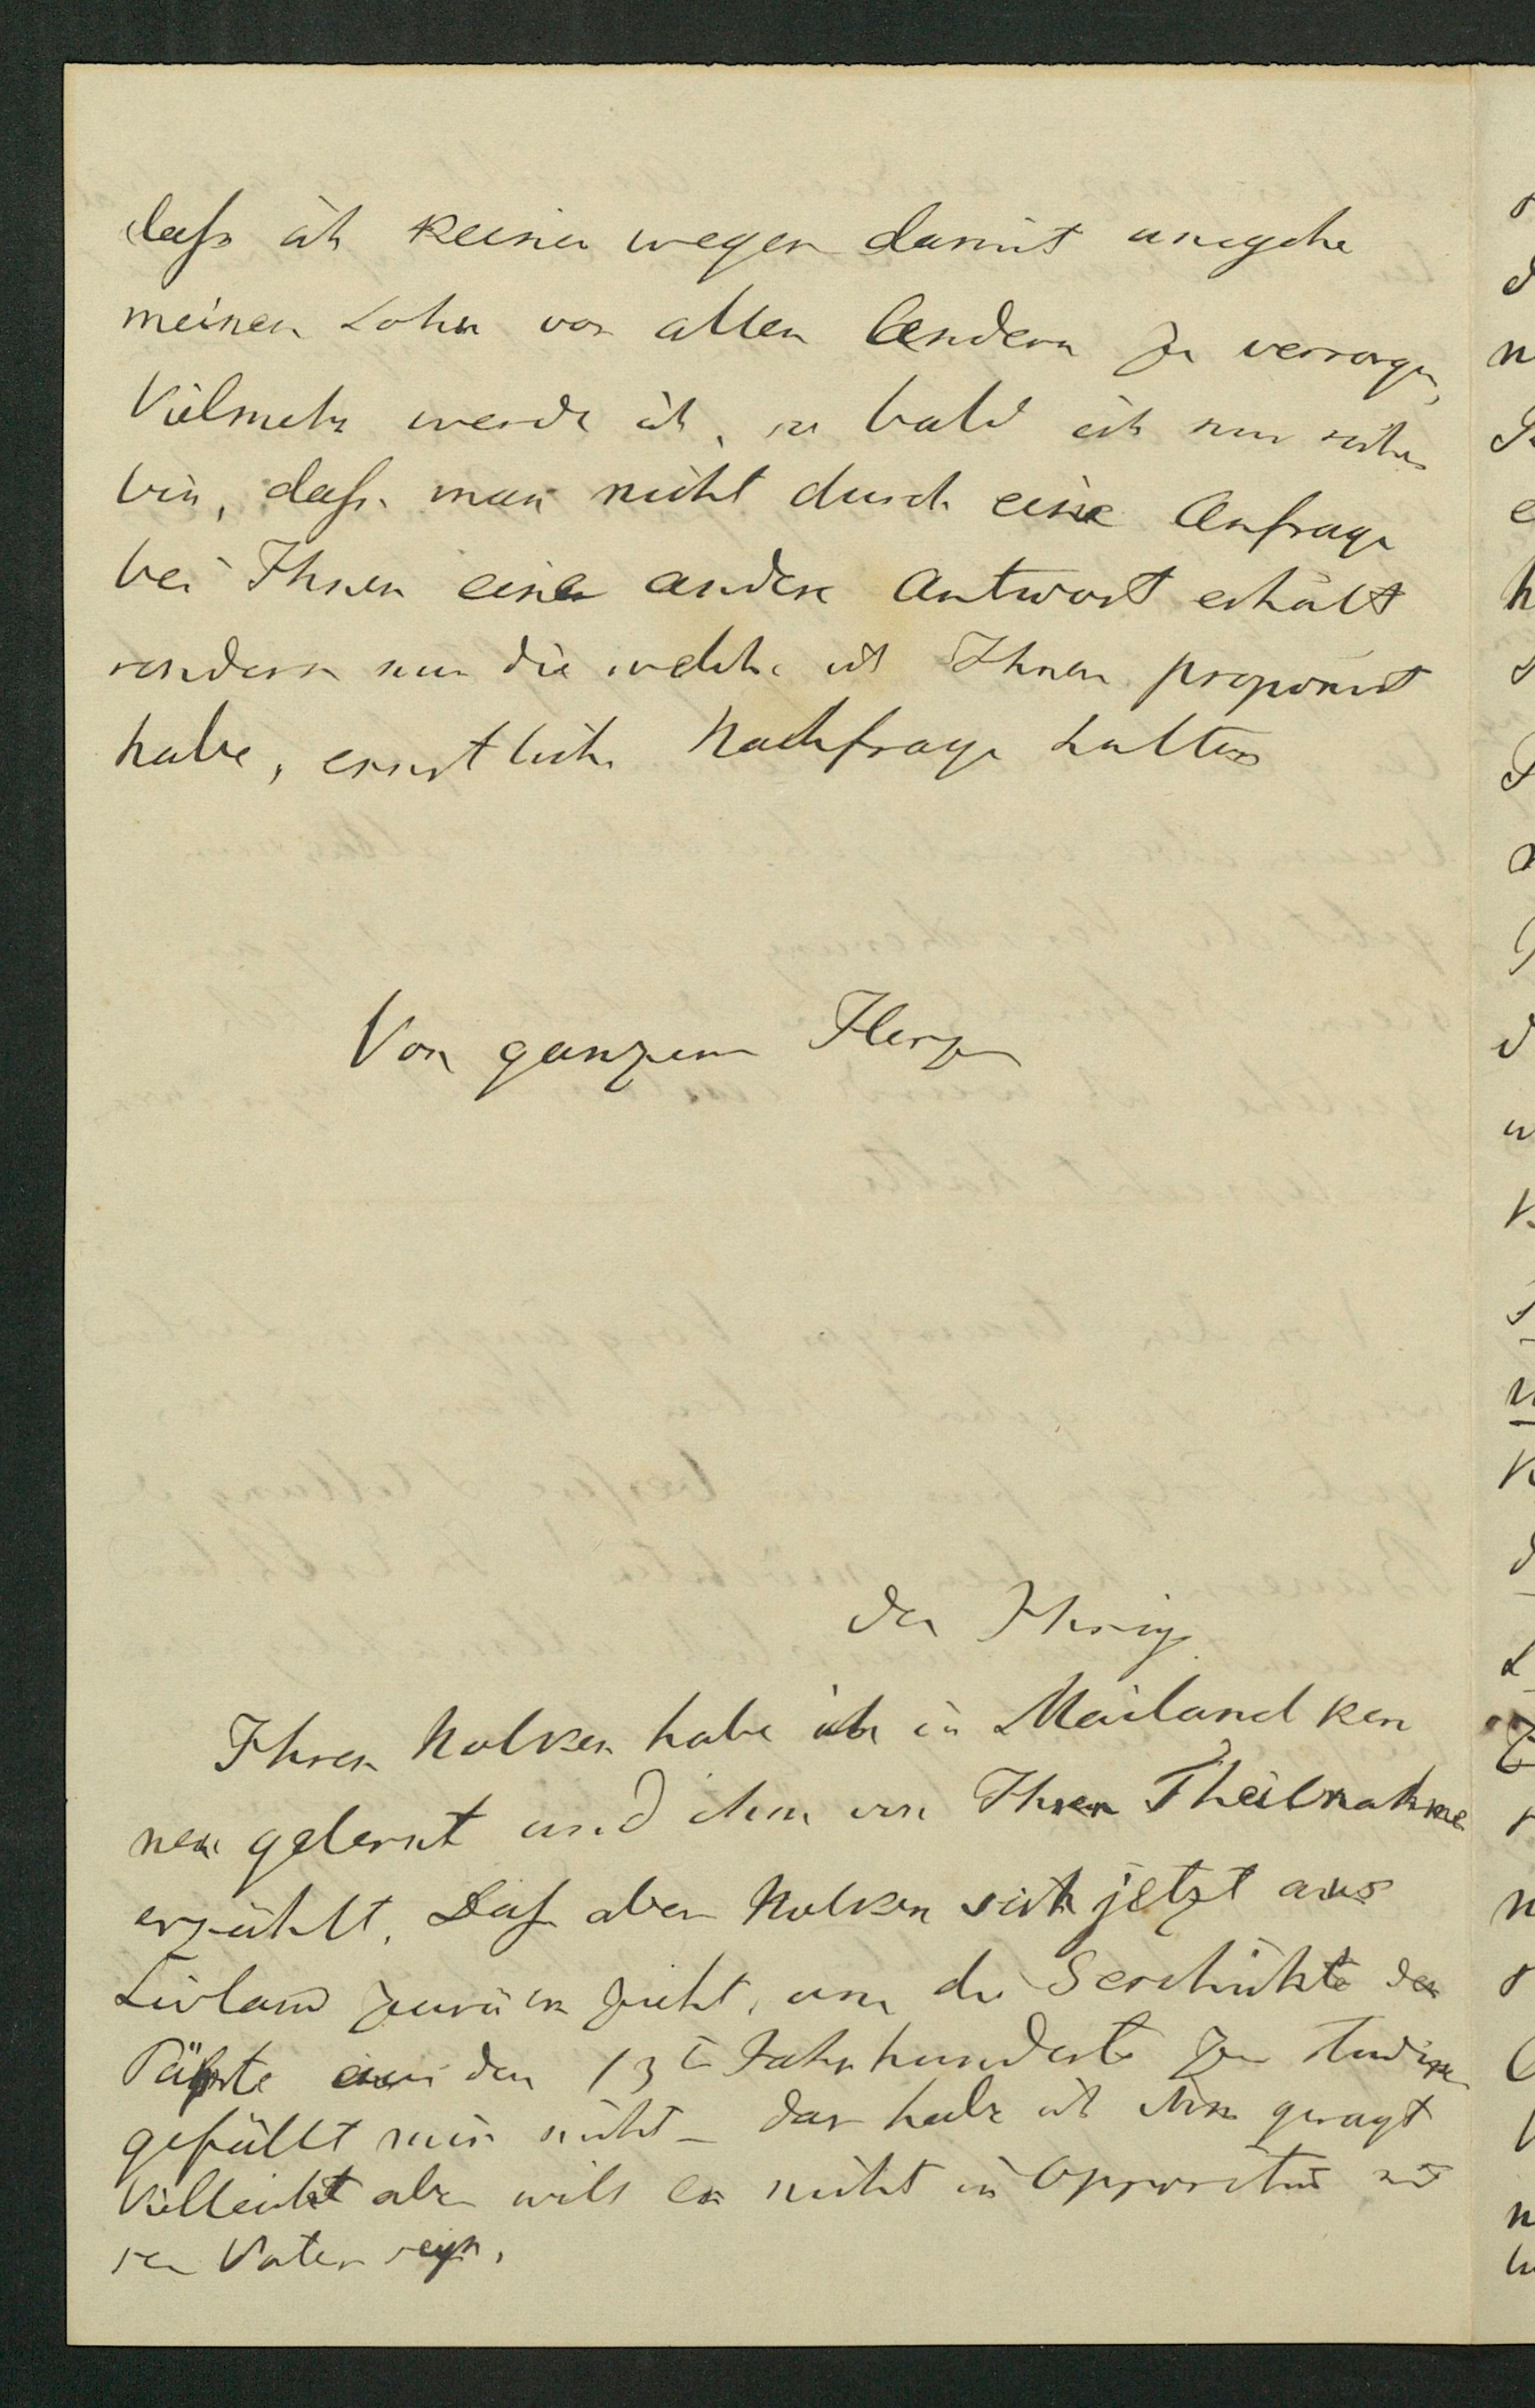 daß ich keines wegen damit umgehe
meinen Sohn vor allen Andern zu versorgen,
Vielmehr werde ich, so bald ich nur sicher
bin, daß man nicht durch eine Anfrage
bei Ihnen eine andere Antwort erhält
sondern nur die welche ich Ihnen proponirt
habe, ernstlich Nachfrage halten
Von ganzem Herzen
der Ihrige
Ihren Nolken habe ich in Mailand ken
nen gelernt und ihm von Ihrer Theilnahme
erzählt. Daß aber Nolken sich jetzt aus
Livland zurück zieht, um die Geschichte der
Päbste aus dem 13t Jahrhunderte zu studiren
gefällt mir nicht – das habe ich ihm gesagt
Vielleicht aber will er nicht in Opposition mit
sen Vater seyn.